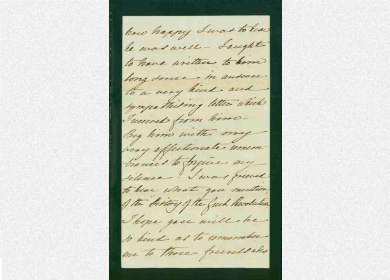 how happy I was to hear
he was well – I ought
to have written to him
long since in answer
to a very kind and
sympathising letter which
I received from him –
Beg him with my
very affectionate remem-
brances to forgive my
silence. I was grieved
to hear what you mention
of the History of the Greek Revolution
I hope you will be
so kind as to remember
me to those friends who